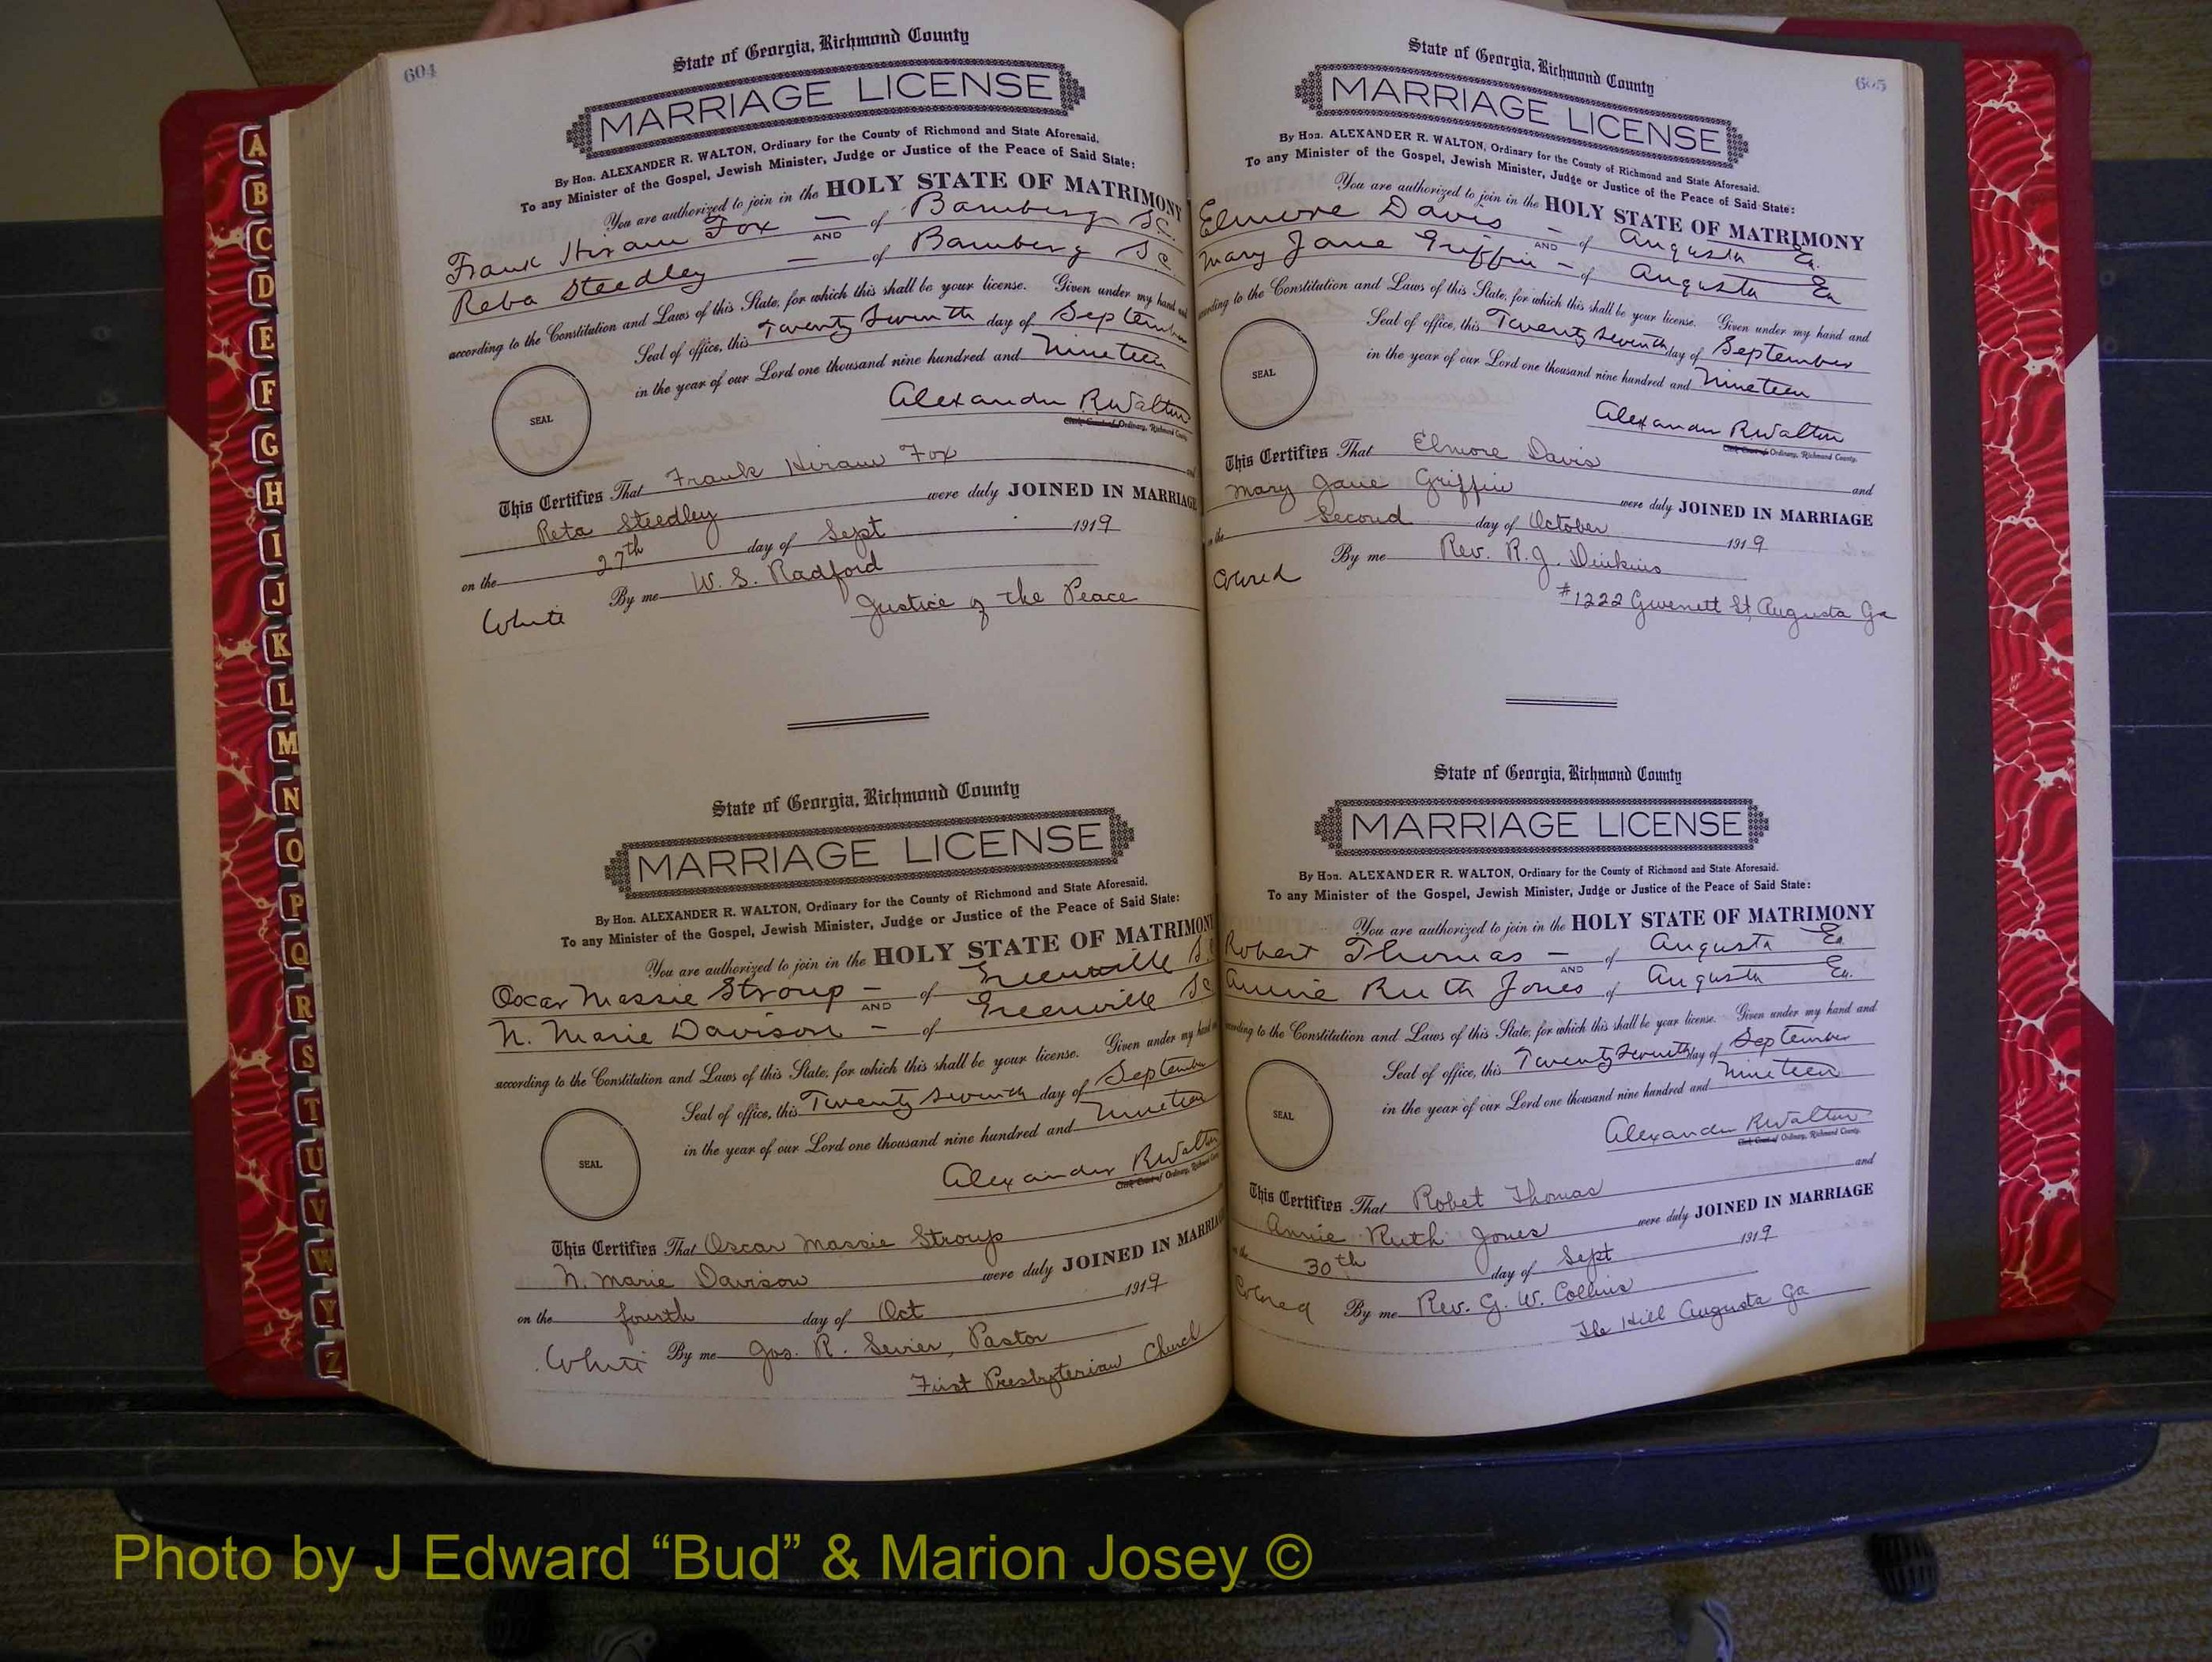 604
State of Georgia, Richmond County
MARRIAGE LICENSE
By Hon. ALEXANDER R. WALTON, Ordinary for the County of Richmond and State Aforesaid.
To any Minister of the Gospel, Jewish Minister, Judge or Justice of the Peace of Said State:
You are authorized to join in the HOLY STATE OF MATRIMONY
Frank Hiram Fox — of Bamberg S.C.
AND
Reba Steedley — of Bamberg S C
according to the Constitution and Laws of this State, for which this shall be your license. Given under my hand and
Seal of office, this Twenty Seventh day of September
in the year of our Lord one thousand nine hundred and Nineteen
SEAL
Alexander R Walton
Clerk Court of Ordinary, Richmond County
This Certifies That Frank Hiram Fox and
Reta Steedley were duly JOINED IN MARRIAGE
on the 27th day of Sept 1919
White By me W. S. Radford
Justice of the Peace
State of Georgia, Richmond County
MARRIAGE LICENSE
By Hon. ALEXANDER R. WALTON, Ordinary for the County of Richmond and State Aforesaid.
To any Minister of the Gospel, Jewish Minister, Judge or Justice of the Peace of Said State:
You are authorized to join in the HOLY STATE OF MATRIMONY
Oscar Massie Stroup — of Greenville S.C
AND
N. Marie Davison — of Greenville SC
according to the Constitution and Laws of this State, for which this shall be your license. Given under my hand
Seal of office, this Twenty Seventh day of September
in the year of our Lord one thousand nine hundred and Nineteen
SEAL
Alexander R Walton
Clerk Court of Ordinary, Richmond
This Certifies That Oscar Massie Stroup
N. Marie Davison were duly JOINED IN MARRIAGE
on the fourth day of Oct 1919
White By me Jos. R. Sevier, Pastor
First Presbyterian Church
605
State of Georgia, Richmond County
MARRIAGE LICENSE
By Hon. ALEXANDER R. WALTON, Ordinary for the County of Richmond and State Aforesaid.
To any Minister of the Gospel, Jewish Minister, Judge or Justice of the Peace of Said State:
You are authorized to join in the HOLY STATE OF MATRIMONY
Elmore Davis — of Augusta Ga.
AND
Mary Jane Griffin — of Augusta Ga
according to the Constitution and Laws of this State, for which this shall be your license. Given under my hand and
Seal of office, this Twenty Seventh day of September
in the year of our Lord one thousand nine hundred and Nineteen
SEAL
Alexander R Walton
Clerk Court of Ordinary, Richmond County.
This Certifies That Elmore Davis and
Mary Jane Griffin were duly JOINED IN MARRIAGE
on the Second day of October 1919
By me Rev. R. J. Dinkins
#1222 Gwenett St, Augusta Ga
State of Georgia, Richmond County
MARRIAGE LICENSE
By Hon. ALEXANDER R. WALTON, Ordinary for the County of Richmond and State Aforesaid.
To any Minister of the Gospel, Jewish Minister, Judge or Justice of the Peace of Said State:
You are authorized to join in the HOLY STATE OF MATRIMONY
Robert Thomas — of Augusta Ga
AND
Annie Ruth Jones of Augusta Ga.
according to the Constitution and Laws of this State, for which this shall be your license. Given under my hand and
Seal of office, this Twenty Seventh day of September
in the year of our Lord one thousand nine hundred and Nineteen
SEAL
Alexander R Walton
Clerk Court of Ordinary, Richmond County.
This Certifies That Robet Thomas and
Annie Ruth Jones were duly JOINED IN MARRIAGE
on the 30th day of Sept 1919
Colored By me Rev. G. W. Collins
The Hill Augusta Ga
A
B
C
D
E
F
G
H
I
J
K
L
M
N
O
P
Q
R
S
T
U
V
W
Y
Z
Photo by J Edward “Bud” & Marion Josey ©